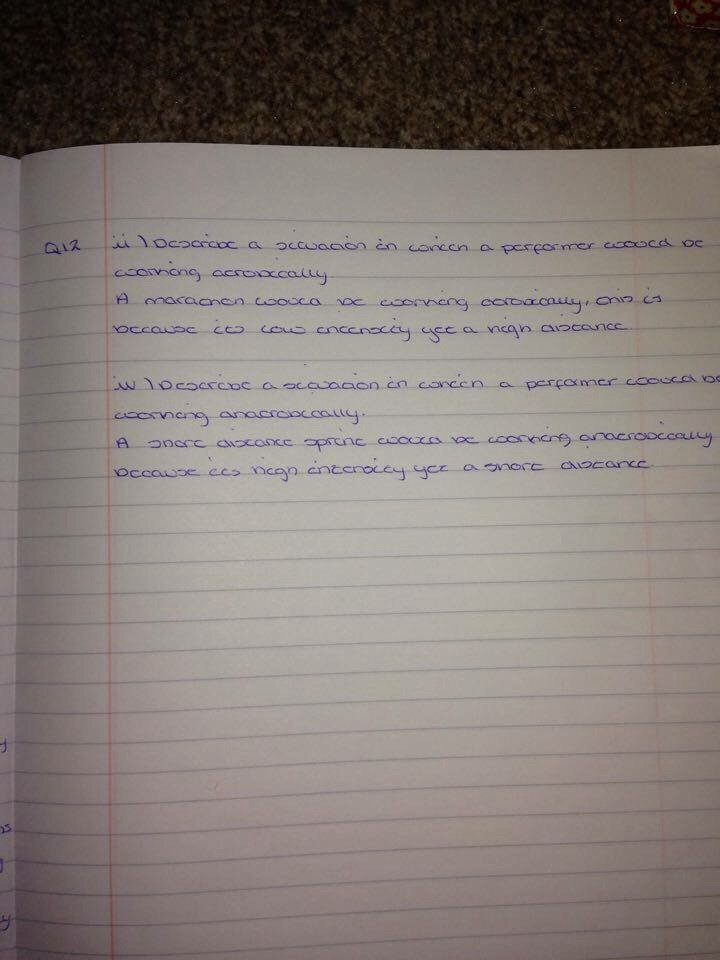 Q12 ii) Describe a situation in which a performer would be
working aerobically.
A marathon would be working aerobically, this is
because its low intensity yet a high distance
iv) Describe a situation in which a performer would be
working anaerobically.
A short distance sprint would be working anaerobically
because its high intensity yet a short distance
y
y